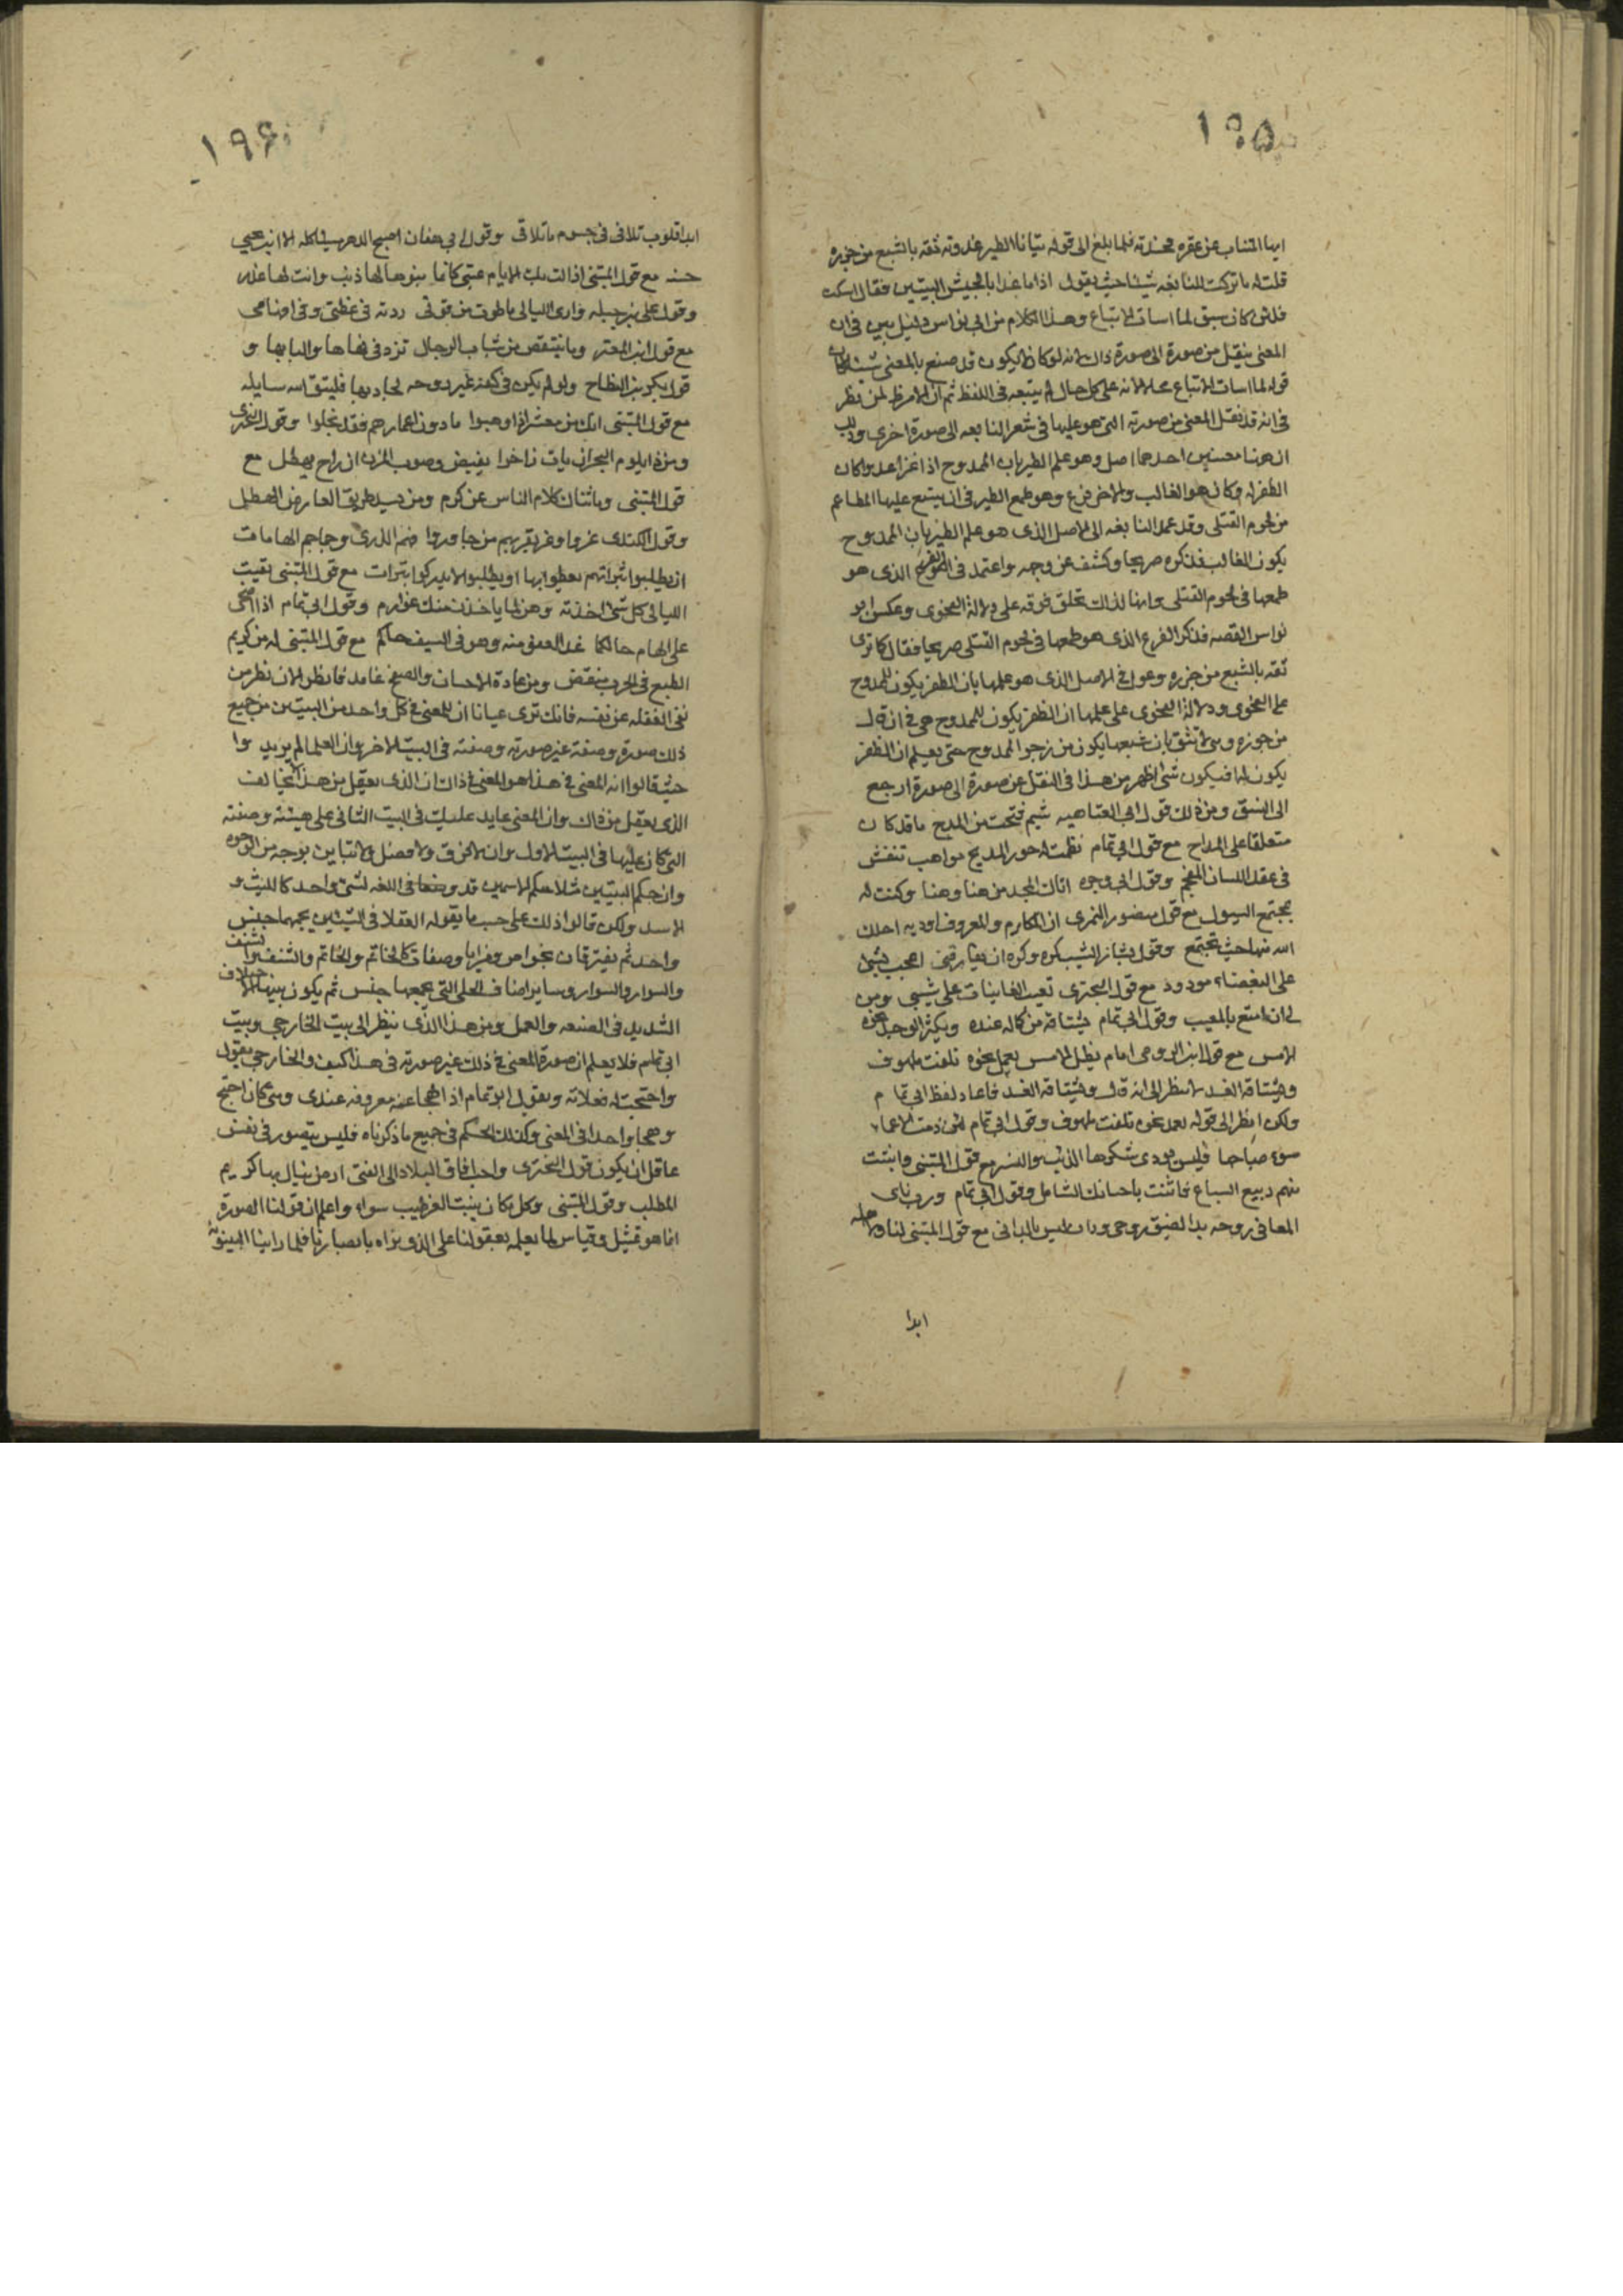 ١٩٥
ايها المنتاب عن عفره فلما بلغ الى قوله تتايا الطير غدوته ثقة بالشبع من جزره
قلت له ما تركت للنابغه شيئا حيث يقول اذا ما غدا بالجيش البيتين فقال اسكت
فلئن كان سبق لما اسات الاتباع وهذا الكلام من ابى نواس دليل بين فى ان
المعنى ينقل من صورة الى صورة ذاك انه لو كان لا يكون قد صنع بالمعنى شيئا لكان
قوله لما اسات الاتباع محالا لانه على كل حال لم يتبعه فى اللفظ ثم ان الامر ظاهر لمن نظر
فى انه قد نقل المعنى من صورته التى هو عليها فى شعر النابعه الى صورة اخرى وذلك
ان هنا معنيين احدهما اصل وهو علم الطير بان الممدوح اذا غزا عدوا كان
الظفر له وكان هو الغالب والاخر فرع وهو طمع الطير فى ان يتسع عليها المطاعم
من لحوم القتلى وقد عمد النابغه الى الاصل الذى هو علم الطير بان الممدوح
يكون الغالب فذكره صريحا وكشف عن وجهه واعتمد فى الفرع الذى هو
طمعها فى لحوم القتلى وانها لذلك تحلق فوقه على دلالة الفحوى وعكس ابو
نواس القصه فذكر الفرع الذى هو طمعها فى لحوم القتلى صريحا فقال كما ترى
ثقه بالشبع من جزره وعول فى الاصل الذى هو علمها بان الظفر يكون للممدوح
على الفحوى ودلالة الفحوى على علمها ان الظفر يكون للممدوح هى فى ان قال
من جزره وهى لا تثق بان شبعها يكون من جزر الممدوح حتى يعلم ان الظفر
يكون له افيكون شئ اظهر من هذا فى النقل عن صورة الى صورة ارجع
الى النسق ومن ذلك قول ابى العتاهيه شيم فتحت من المدح ما قد كان
متعلقا على المداح مع قول ابى تمام نظمت له خرز المديح مواهب ينفثن
فى عقد اللسان المفحم وقول ابى وجزه اتاك المجد من هنا وهنا وكنت له
بمجتمع السيول مع قول منصور النمرى ان المكارم والمعروف اوديه احلك
الله منها حيث تجتمع وقول بشار الشيب كره وكره ان يفارقنى اعجب بشئ
على البغضاء مودود مع قول البحترى تعيب الغانيات على شيبى ومن
لى ان امتع بالمعيب وقول ابى تمام يشتاقه من كماله غده ويكثر الوجد نحوه
الامس مع قول ابن الرومى امام يظل الامس يعمل نحوه تلفت ملهوف
ويشتاقه الغد لا تنظر الى انه قال ويشتاقه الغد فاعاد لفظ ابى تمام
ولكن انظر الى قوله يعمل نحوه تلفت ملهوف وقول ابى تمام لئن ذمت الاعداء
سوء صباحها فليس يودى شكرها الذئب والنسر مع قول المتنبى وانبتت
منهم ربيع السباع فاثنت باحسانك الشامل وقول ابى تمام ورب نائى
المغانى روحه ابدا لصيق روحى ودان ليس بالدانى مع قول المتنبى لنا ولاهله
ابدا
١٩٦
ابدا قلوب تلاقى فى جسوم ما تلاقى وقول ابى هفان اصبح الدهر مسيئا كله ما له الا ابن يحيى
حسنه مع قول المتنبى ازالت بك الايام عتبى كانما بنوها لها ذنب وانت لها عذر
وقول على بن جبله وارى الليالى ما طوت من قوتى ردته فى عظتى وفى افهامى
مع قول ابن المعتز وما ينتقص من شباب الرجال تزد فى نهاها والبابها و
قول بكر بن النطاح ولو لم يكن فى كفه غير روحه لجاد بها فليتق الله سايله
مع قول المتنبى انك من معشر اذا وهبوا ما دون اعمارهم فقد بخلوا وقول البحترى
ومن ذا يلوم البحر ان بات زاخرا يفيض وصوب المزن ان راح يهطل مع
قول المتنبى وما ثناك كلام الناس عن كرم ومن يسد طريق العارض الهطل
وقول الكندى عزوا وعز بعزهم من جاوروا فهم الذرى وجماجم الهامات
ان يطلبوا بتراتهم يعطوا بها او يطلبوا لا يدركوا بترات مع قول المتنبى تفيت
الليالى كل شئ اخذته وهن لما ياخذن منك غوارم وقول ابى تمام اذا اضحى
على الهام حاكما غدا العفو منه وهو فى السيف حاكم مع قول المتنبى له من كريم
الطبع فى الحرب منتض ومن عادة الاحسان والصفح غامد فانظر الان نظر من
نفى الغفله عن نفسه فانك ترى عيانا ان للمعنى فى كل واحد من البيتين من جميع
ذلك صورة وصفة غير صورته وصفته فى البيت الاخر وان العلما لم يريدوا
حيث قالوا ان المعنى فى هذا هو المعنى فى ذاك ان الذى يعقل من هذا لا يخالف
الذى يعقل من ذاك وان المعنى عايد عليك فى البيت الثانى على هيئته وصفته
التى كان عليها فى البيت الاول وان لا فرق ولا فصل ولا تباين بوجه من الوجوه
وان حكم البيتين مثلا حكم الاسمين قد وضعا فى اللغه لشئ واحد كالليث و
الاسد ولكن قالوا ذلك على حسب ما يقوله العقلا فى الشيئين يجمعهما جنس
واحد ثم يفترقان بخواص ومزايا وصفات كالخاتم والخاتم والشنف والشنف
والسوار والسوار وساير اصناف الحلى التى يجمعها جنس ثم يكون بينهما الاختلاف
الشديد فى الصنعه والعمل ومن هذا الذى ينظر الى بيت الخارجى وبيت
ابى تمام فلا يعلم ان صورة المعنى فى ذلك غير صورته فى هذا كيف والخارجى يقول
واحتجت له فعلاته ويقول ابو تمام اذا لهجانى عنه معروفه عندى ومتى كان احتج
وهجا واحدا فى المعنى وكذلك الحكم فى جميع ما ذكرناه فليس يتصور فى نفس
عاقل ان يكون قول البحترى واحب افاق البلاد الى الفتى ارض ينال بها كريم
المطلب وقول المتنبى وكل مكان ينبت العز طيب سواء واعلم ان قولنا الصورة
انما هو تمثيل وقياس لما يعلمه بعقولنا على الذى نراه بابصارنا فلما راينا البينونة